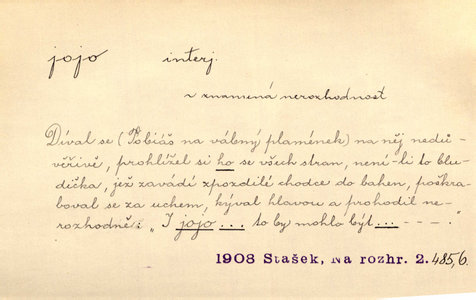 jojo interj.
~ znamená nerozhodnost
Díval se (Tobiáš na vábný plamének) na něj nedů-
věřivě, prohlížel si ho se všech stran, není-li to blu-
dička, jež zavádí zpozdilé chodce do bahen, poškra-
boval se za uchem, kýval hlavou a prohodil ne-
rozhodně: „I jojo... to by mohlo být... - - - -."
1908 Stašek, Na rozhr. 2. 485,6.